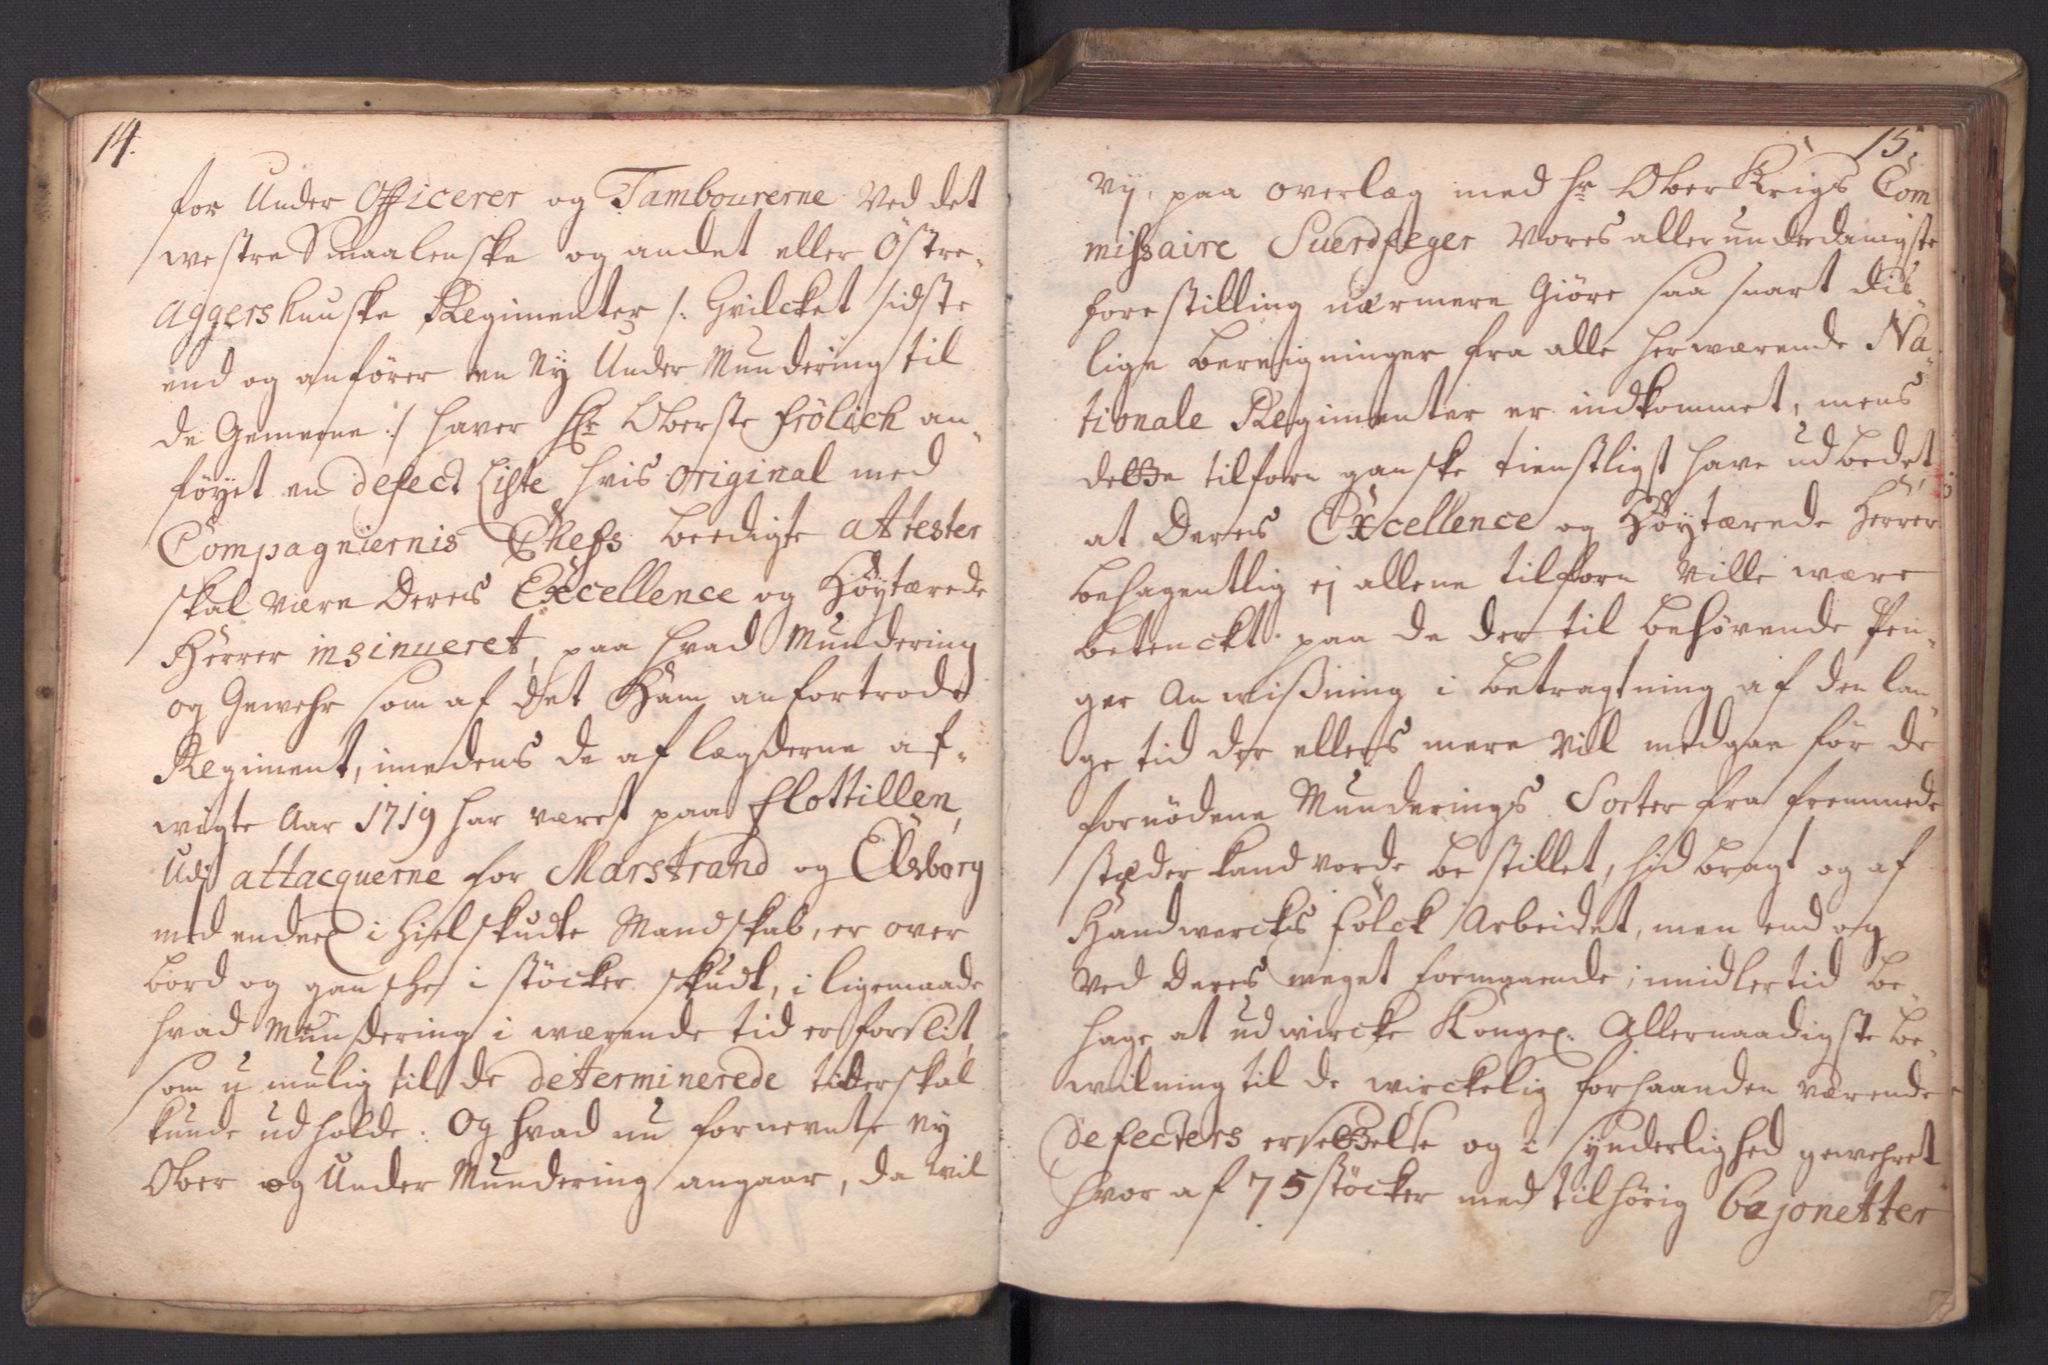 14.
for Under Officerer og Tambourerne ved det
westre Smaalenske og andet eller Östre-
Aggershuuske Regimenter /: Hvilcket sidste
end og anfører en Ny Under Mundering til
de Gemeene :/ haver Hr Oberste Frölich an-
føyet en defect Liste hvis original med
Compagniernis Chefs beedigte attester
skal være Deris Excellence og Höytærede
Herrer insinueret, paa hvad Mundering
og Gewehr som af det Ham anfortrode
Regiment, imedens de af lægderne af-
wigte Aar 1719 har været paa Flottillen,
Udj attacquerne for Marstrand og Elsborg
med endeel ihielskudte Mandskab, er over
bord og ganske i støcker skudt, i ligemaade
hvad Mundering i wærende tid er forslit,
som u mulig til de determinerede tider skal
kunde udholde: Og hvad nu fornevnte ny
Ober og Under Mundering angaar, da wil
15.
vij, paa overlæg med Hr Ober Krigs Com
missaire Suerdfeger vores allerunderdanigste
forestilling nærmere Giöre saa snart dis-
lige beregninger fra alle herwærende Na-
tionale Regimenter er indkommet, mens
dette tilforn ganske tienstligst have udbedet,
at Deres Excellence og Höytærede Herrer
behagentlig ej allene tilforn ville wære
betenckt paa de der til behøvende Pen-
ger Anwißning i betragtning af den lan-
ge tid der ellers mere vil medgaae før de
fornödene Munderings Sorter fra fremmede
stæder kand vorde bestillet, hid bragt og af
Handwercks Folck Arbeidet, men end og
ved Deres meget formaaende, imidlertid be-
hage at udwircke Kongel: Allernaadigste be-
wilning til de wirckelig forhaanden værende
defecters ersettelse og i synderlighed gewehret
hvor af 75 støcker med tilhörig bajonetter